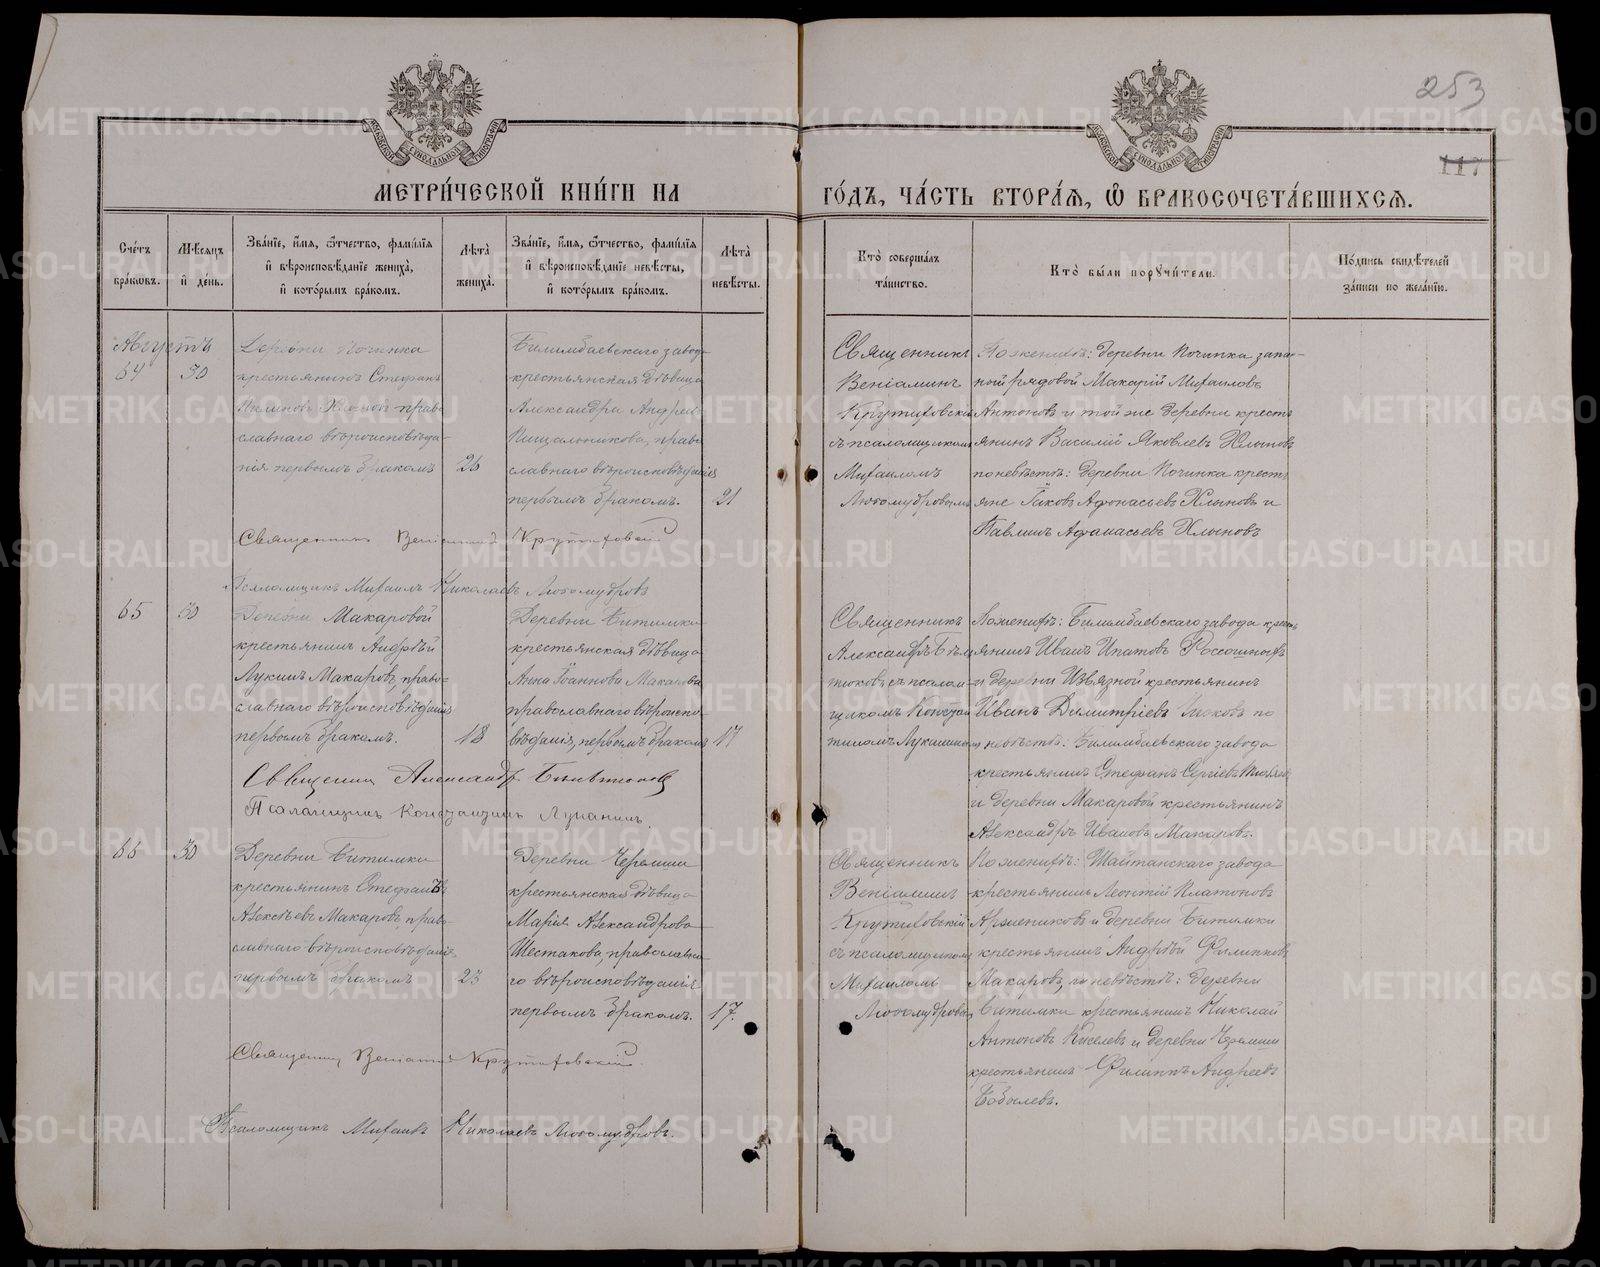 253
117
МЕТРИ́ЧЕСКОЙ КНИ́ГИ НА
ГО́ДЪ, ЧА́СТЬ ВТОРА́Я, Ѡ БРАКОСОЧЕТА́ВШИХСЯ.
Сче́тъ бра́кѡвъ.
Мѣ́сяцъ и҆ де́нь.
Зва́нїе, и҆́мя, ѻ҆́тчество, фами́лїя и҆ вѣроисповѣ́данїе жениха̀, и҆ кото́рымъ бра́комъ.
Лѣта̀ жениха̀.
Зва́нїе, и҆́мя, ѻ҆́тчество, фами́лїя и҆ вѣроисповѣ́данїе невѣ́сты, и҆ кото́рымъ бра́комъ.
Лѣта̀ невѣ́сты.
Кто̀ соверша́лъ та́инство.
Кто̀ бы́ли порꙋчи́тели.
По́дпись свидѣ́телей за́писи по жела́нїю.
Августъ
64 30
Деревни Починка
крестьянинъ Стефанъ
Хлыновъ право-
славнаго вѣроисповѣда-
нія первымъ бракомъ
26
Билимбаевскаго завода
крестьянская дѣвица
Александра Андреева
Пищальникова, право
славнаго вѣроисповѣданія
первымъ бракомъ.
21
Священникъ
Веніаминъ
Крутиховскій
съ псаломщикомъ
Михаиломъ
Любомудровымъ
По женихѣ: деревни Починка запас-
ной рядовой Макарій Михаиловъ
Антоновъ и той же деревни кресть
янинъ Василій Яковлевъ Хлыновъ
по невѣстѣ: деревни Починка кресть
яне Іаковъ Афонасьевъ Хлыновъ и
Павлинъ Афанасьевъ Хлыновъ
Священникъ Веніаминъ Крутиховскій
Псаломщикъ Михаилъ Николаевъ Любомудровъ
65 30
Деревни Макаровой
крестьянинъ Андрѣй
Лукинъ Макаровъ, право-
славнаго вѣроисповѣданія
первымъ бракомъ.
18
Деревни Битимки
крестьянская дѣвица
Анна Іоаннова Макарова
православнаго вѣроиспо-
вѣданія, первымъ бракомъ
17
Священникъ
Александръ Билѣ
тюковъ съ псалом-
щикомъ Констан
тиномъ Луканинымъ
По женихѣ: Билимбаевскаго завода кресть
янинъ Иванъ Ипатовъ Россошныхъ
и деревни Извязной крестьянинъ
Иванъ Димитріевъ по
невѣстѣ: Билимбаевскаго завода
крестьянинъ Стефанъ Сергіевъ
и деревни Макаровой крестьянинъ
Александръ Ивановъ Макаровъ.
Священникъ Александръ
Псаломщикъ Константинъ Луканинъ
66 30
Деревни Битимки
крестьянинъ Стефанъ
Алексѣевъ Макаровъ, право-
славнаго вѣроисповѣданія
первымъ бракомъ
23
Деревни Черемши
крестьянская дѣвица
Марія Александрова
Шестакова, православна
го вѣроисповѣданія
первымъ бракомъ.
17.
Священникъ
Веніаминъ
Крутиховскій
съ псаломщикомъ
Михаиломъ
Любомудровымъ
По женихѣ: Шайтанскаго завода
крестьянинъ Леонтій Платоновъ
и деревни Битимки
крестьянинъ Андрѣй Филипповъ
Макаровъ, по невѣстѣ: деревни
Битимки крестьянинъ Николай
Антоновъ Киселевъ и деревни Черемши
крестьянинъ Филиппъ Андреевъ
Бобылевъ.
Священникъ Веніаминъ Крутиховскій
Псаломщикъ Михаилъ Николаевъ Любомудровъ.
METRIKI.GASO-URAL.RU